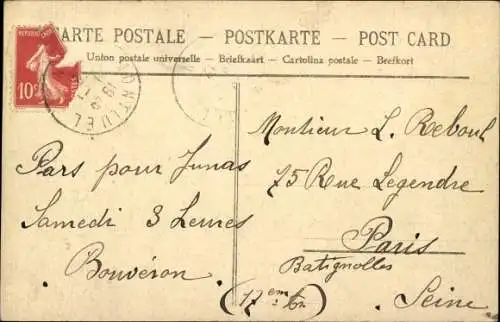 CARTE POSTALE — POSTKARTE — POST CARD
Union postale universelle — Briefkaart — Cartolina postale — Brefkort
10c
MONTLUEL
Pars pour Junas
Samedi 3 
Bouvéron.
Monsieur L. Reboul
75 Rue Legendre
Paris
Batignolles
(17em)
Seine